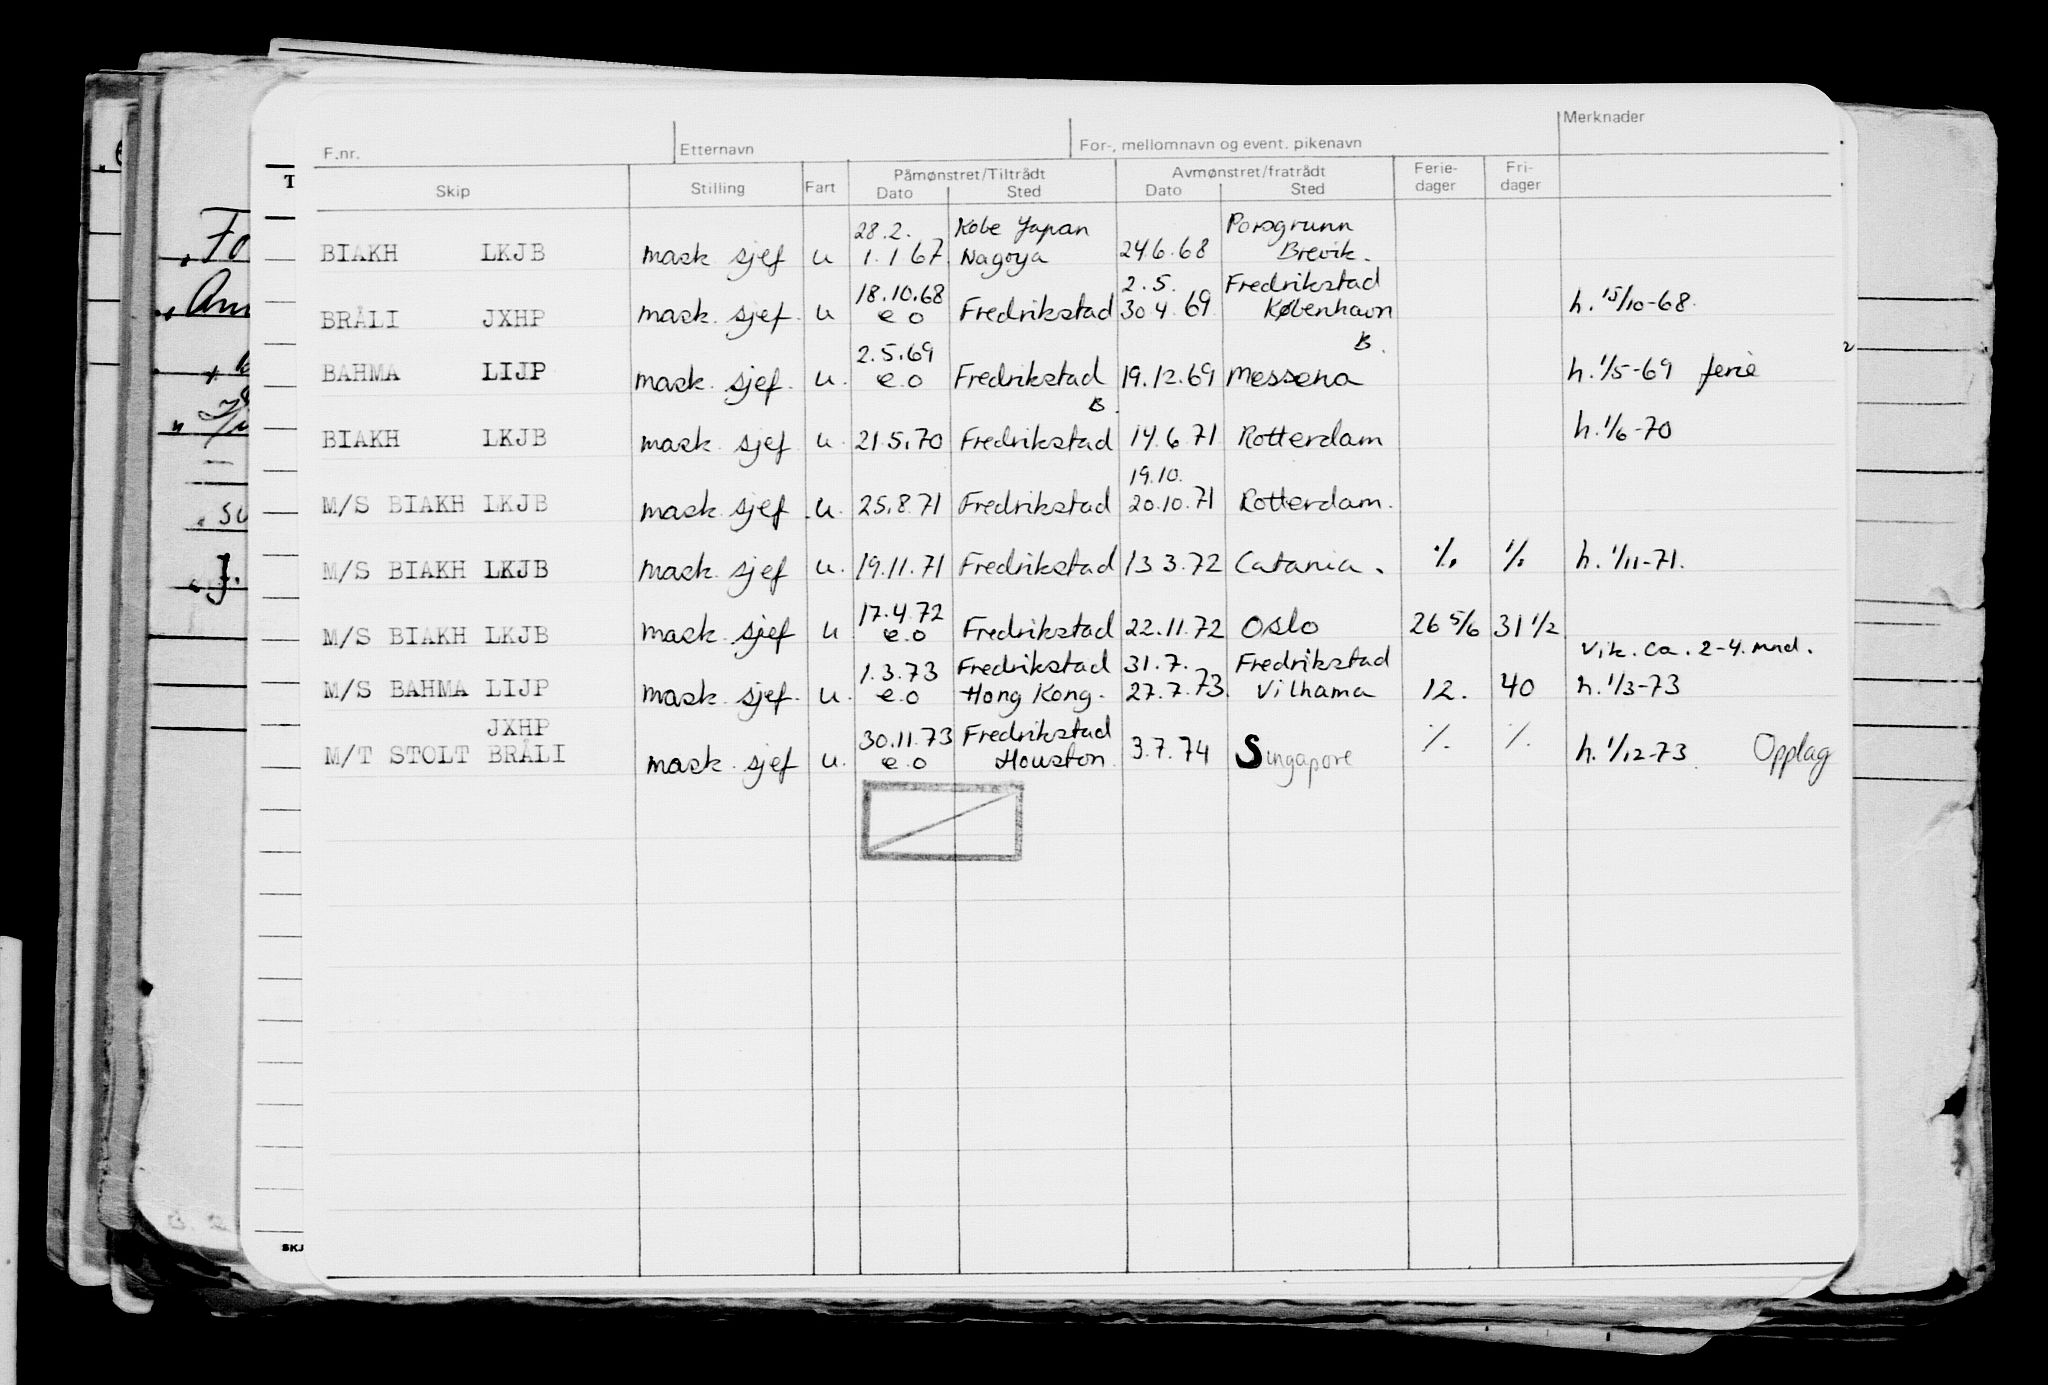 F.nr. Etternavn For-, mellomnavn og event. pikenavn Merknader
Skip Stilling Fart Påmønstret/Tiltrådt Dato Sted Avmønstret/fratrådt Dato Sted Ferie-dager Fri-dager
28.2. Kobe Japan Porsgrunn
BIAKH LKJB mask sjef u 1.1 67 Nagoya 24.6.68 Brevik.
18.10.68 2.5. Fredrikstad
BRÅLI JXHP mask. sjef. u e.o Fredrikstad 30 4. 69 København h. 15/10-68.
2.5.69 B.
BAHMA LIJP mask. sjef. u. e.o Fredrikstad 19.12.69 Messena h. 1/5-69 ferie
B.
BIAKH LKJB mask. sjef u. 21.5.70 Fredrikstad 14.6.71 Rotterdam h. 1/6-70
19.10.
M/S BIAKH LKJB mask. sjef .u. 25.8.71 Fredrikstad 20.10.71 Rotterdam.
M/S BIAKH LKJB mask. sjef u. 19.11.71 Fredrikstad 13 3.72 Catania. ./. ./. h. 1/11-71.
17.4.72
M/S BIAKH LKJB mask. sjef u e.o Fredrikstad 22.11.72 Oslo 26 5/6 31 1/2
1.3.73 Fredrikstad 31.7. Fredrikstad vik. ca. 2-4. mnd.
M/S BAHMA LIJP mask. sjef. u. e.o Hong Kong. 27.7.73. Vilhama 12. 40 h. 1/3-73
JXHP 30.11.73 Fredrikstad
M/T STOLT BRÅLI mask. sjef u. e.o Houston 3.7.74 Singapore ./. ./. h. 1/12-73. Opplag
SKJ